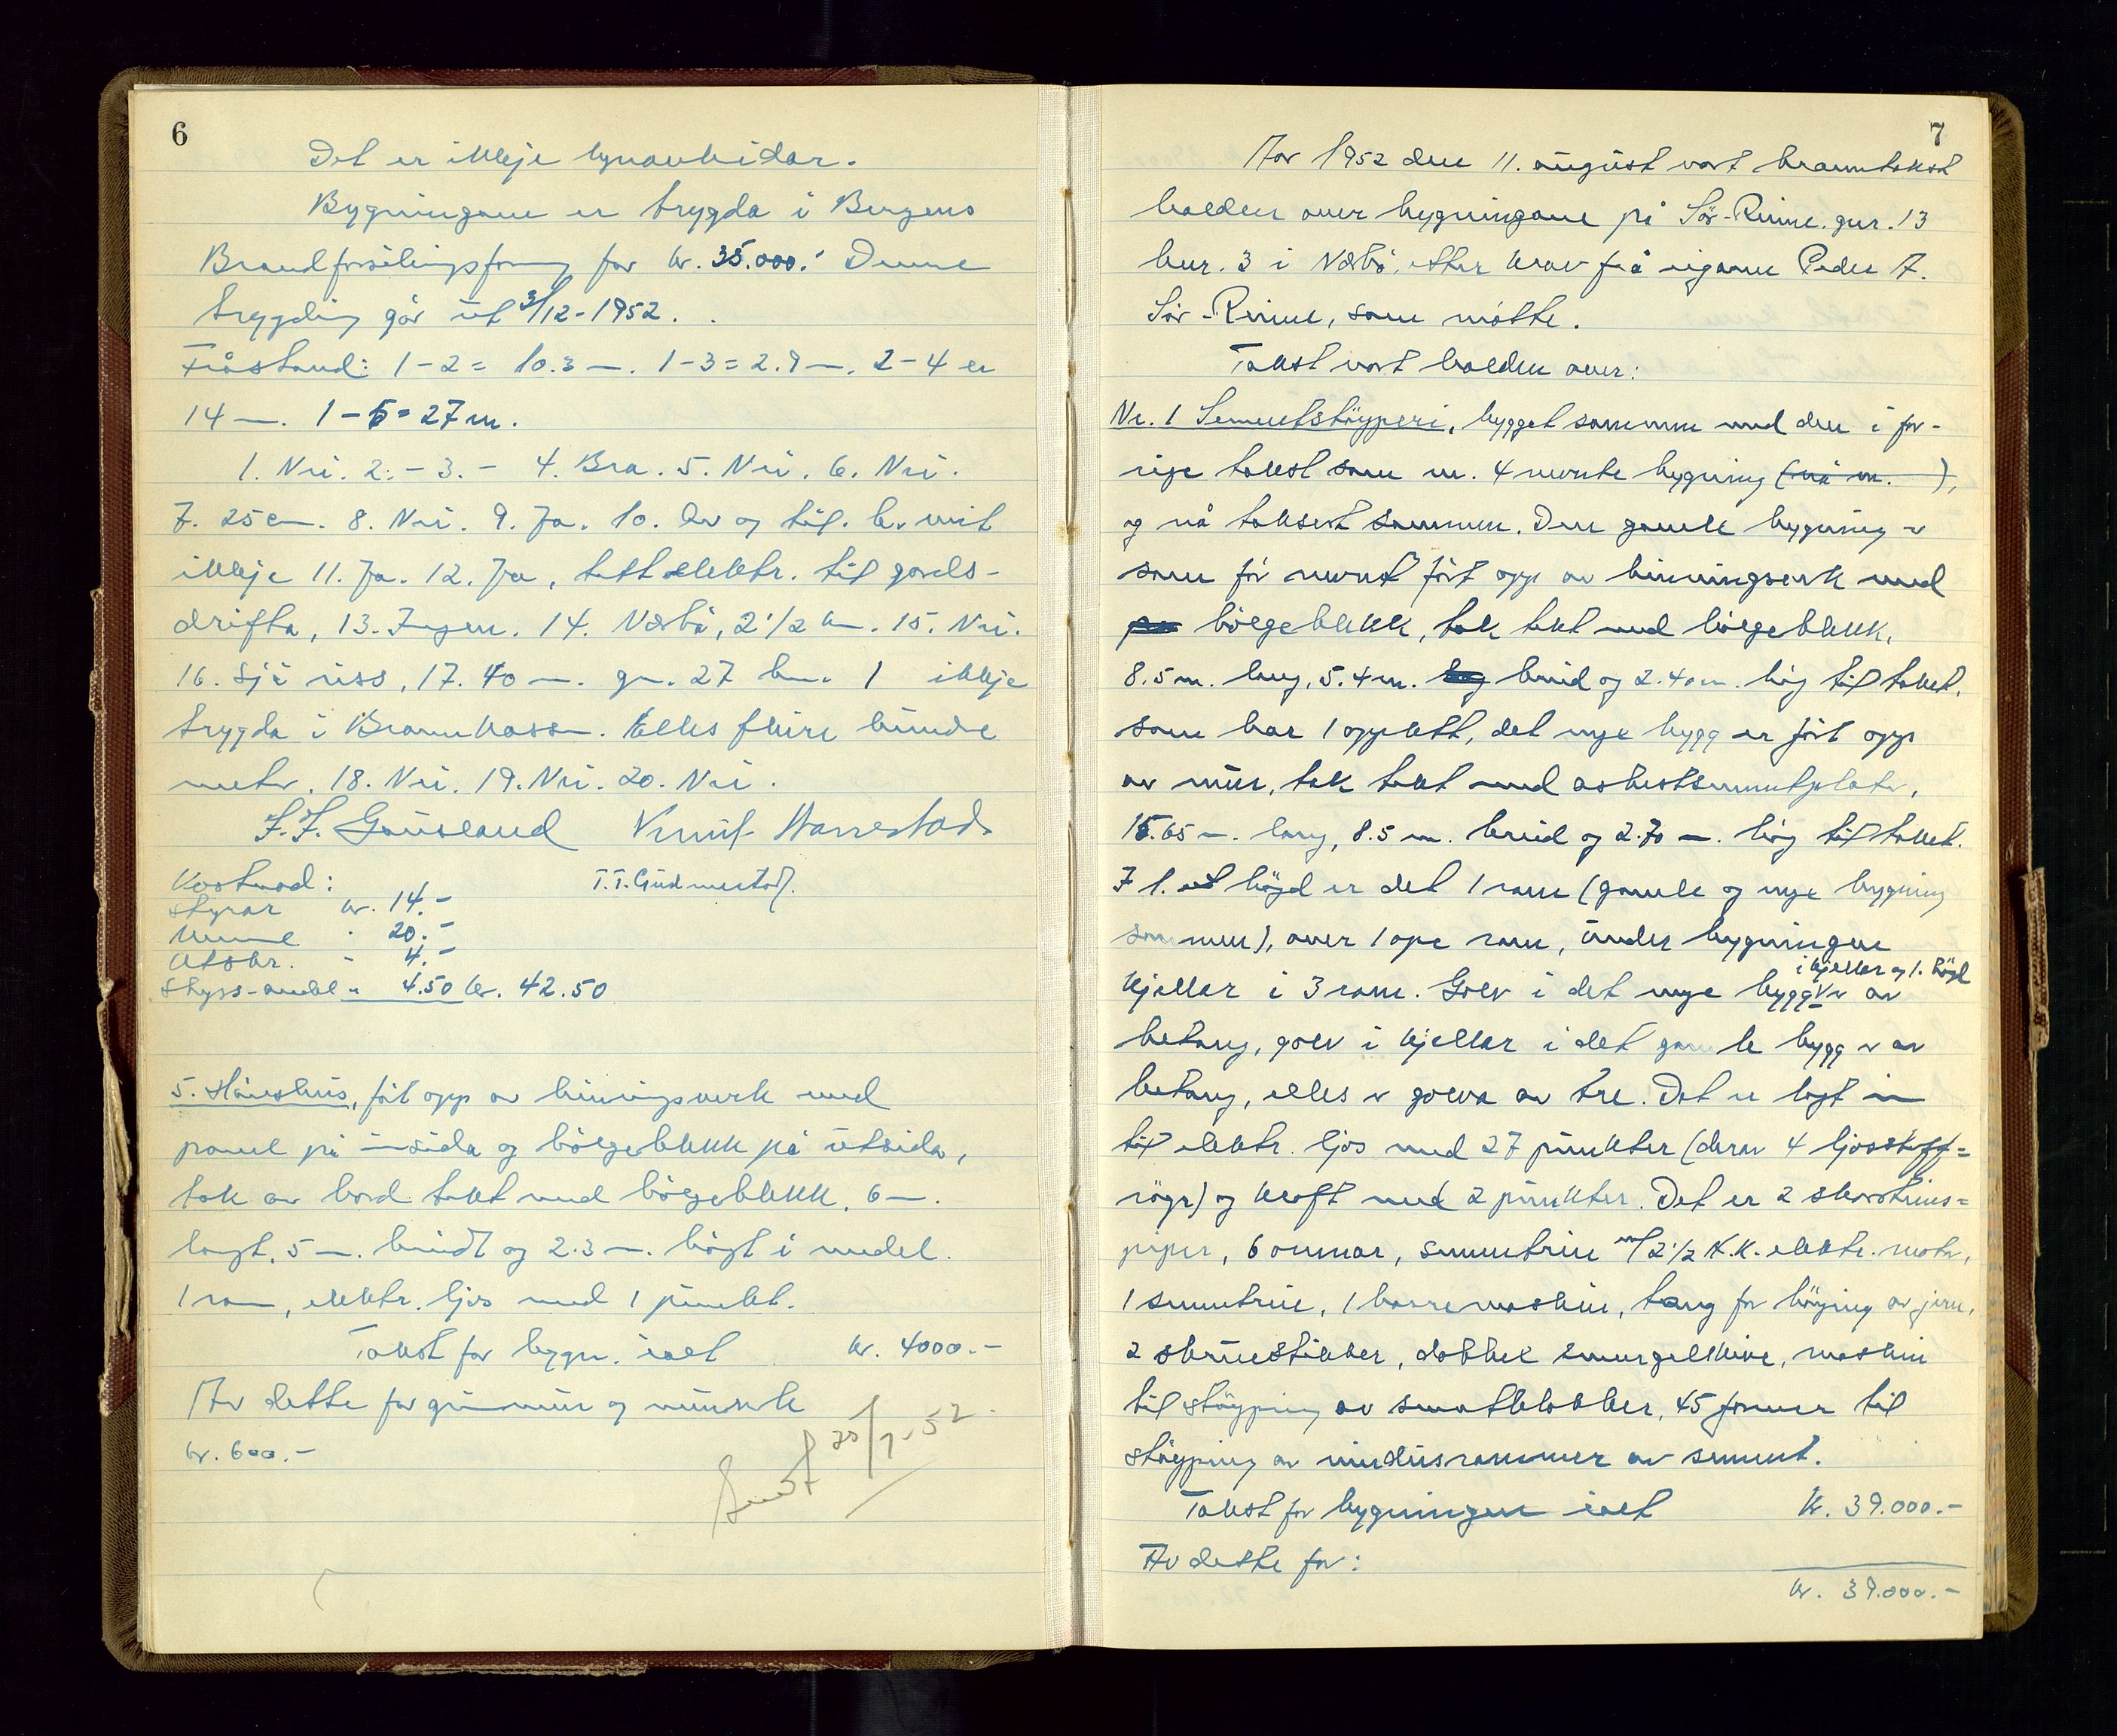 6
Det er ikkje lynavleidar.
Bygningane er trygda i Bergens
Brandforsikringsforng for kr. 35.000.- Denne
trygding går ut 31/12-1952.
Fråstand: 1-2= 10.3 m. 1-3=2.9 m. 2-4 er
14 m. 1-5=27 m.
1. Nei. 2.- 3.- 4. Bra. 5. Nei. 6. Nei.
7. 25 cm. 8. Nei. 9. Ja. 10. og til.
ikkje 11. Ja. 12. Ja, tett elektr. til gards-
drifta, 13. Ingen. 14. Nærbø, 2 1/2 km. 15. Nei.
16. Sjå riss, 17. 40 m. gn. 27 bn. 1 ikkje
trygda i Brannkassn. Elles fleire hundre
meter. 18. Nei. 19. Nei. 20. Nei.
J. J. Gausland Harrestad
Kostnad: T. T. Gudmestad.
Styrar kr. 14.-
Menn " 20.-
Utskr. - 4.-
Skyss-andel " 4.50 kr. 42.50
5. Hønshus, ført opp av bindingsverk med
panel på innsida og bølgeblekk på utsida,
tak av bord tekt med bølgeblekk. 6 m.
langt, 5 m. breidt og 2.3 m. høgt i medel.
1 rom, elektr. ljos med 1 punkt.
Takst for bygn. ialt kr. 4000.-
Av dette for grunnmur og murverk
kr. 600.-
Sendt 20/9-52
7
År 1952 den 11. august vart branntakst
halden over bygningane på Sør-Reime. gnr. 13
bnr. 3 i Nærbø, etter krav frå eigaren Peder A.
Sør-Reime, som møtte.
Takst vart halden over:
Nr. 1 Sementstøyperi, bygget sammen med den i for-
rige takst som nr. 4 nevnte bygning (nå nr. ),
og nå taksert sammen. Den gamle bygning er
som før nevnt ført opp av bindingsverk med
bølgeblekk, tak tekt med bølgeblekk,
8.5 m. lang, 5.4 m. breid og 2.40 m. høg til taket,
som har 1 opplett, det nye bygg er ført opp
av mur, tak tekt med asbestsementplater,
15.65 m. lang, 8.5 m. breid og 2.70 m. høg til taket.
I 1. høgd er det 1 rom (gamle og nye bygning
sammen), over 1 ope rom, under bygningen
i kjellar og 1. høgd
kjellar i 3 rom. Golv i det nye bygg er av
betong, golv i kjellar i det gamle bygg er av
betong, elles er golva av tre. Det er lagt inn
til elektr. ljos med 27 punkter (derav 4 ljosstoff=
røyr) og kraft med 2 punkter. Det er 2 skorsteins=
piper, 6 omnar, sementrie m/2 1/2 H.K. elektr. motor,
1 sementrie, 1 borremaskin, tang for bøying av jern,
2 skruestikker, dobbel smergelskive, maskin
til støyping av sementblokker, 45 former til
støyping av vindusrammer av sement.
Takst for bygningen ialt kr. 39.000.-
Av dette for:
kr. 39.000.-